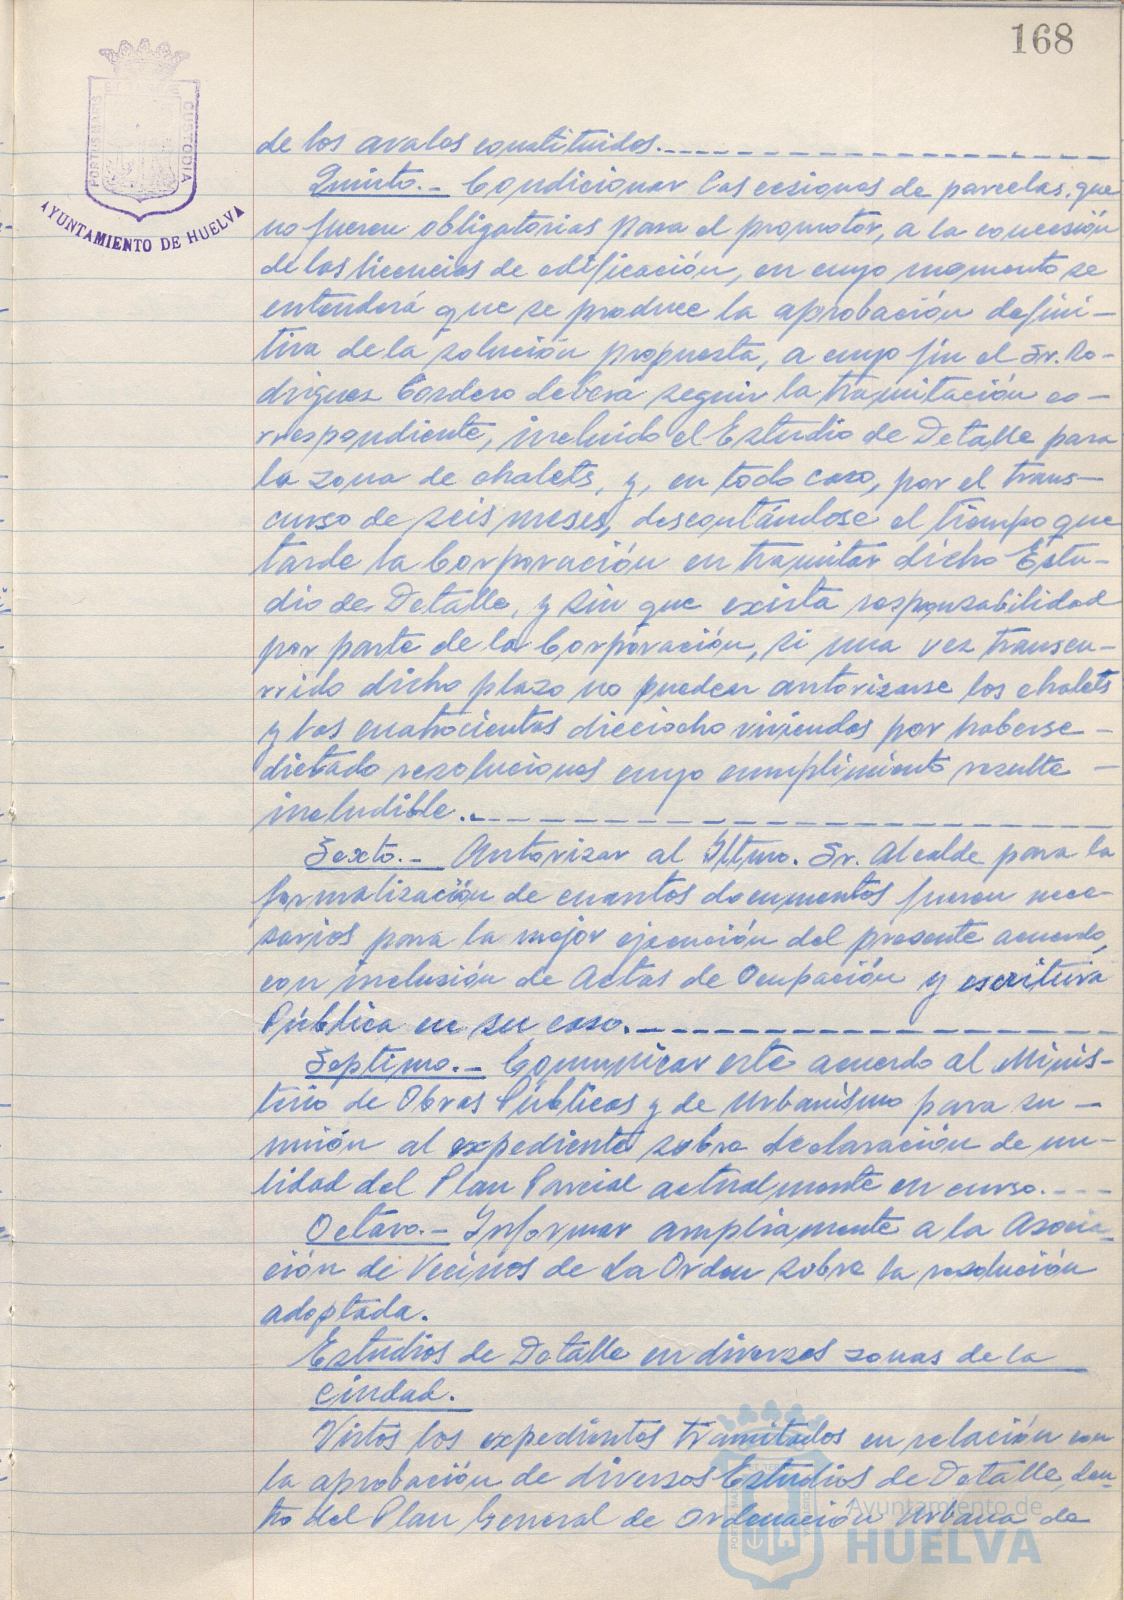 168
PORTUS MARIS ET TERRAE CUSTODIA
AYUNTAMIENTO DE HUELVA
de los avales constituidos.
Quinto.- Condicionar las cesiones de parcelas, que
no fueren obligatorias para el promotor, a la concesión
de las licencias de edificación, en cuyo momento se
entenderá que se produce la aprobación defini-
tiva de la solución propuesta, a cuyo fin el Sr. Ro-
driguez Cordero deberá seguir la tramitación co-
rrespondiente, incluido el Estudio de Detalle para
la zona de chalets, y, en todo caso, por el trans-
curso de seis meses, descontándose el tiempo que
tarde la Corporación en tramitar dicho Estu-
dio de Detalle, y sin que exista responsabilidad
por parte de la Corporación, si una vez transcu-
rrido dicho plazo no pueden autorizarse los chalets
y las cuatrocientas dieciocho viviendas por haberse-
dictado resoluciones cuyo cumplimiento resulte -
ineludible.
Sexto.- Autorizar al Iltmo. Sr. Alcalde para la
formalización de cuantos documentos fueren nece-
sarios para la mejor ejecución del presente acuerdo,
con inclusión de Actas de Ocupación y escritura
Pública en su caso.
Septimo.- Comunicar este acuerdo al Minis-
terio de Obras Públicas y de Urbanismo para su -
unión al expediente sobre declaración de nu-
lidad del Plan Parcial actualmente en curso.
Octavo.- Informar ampliamente a la Asocia-
ción de Vecinos de La Orden sobre la resolución
adoptada.
Estudios de Detalle en diversas zonas de la
Ciudad.
Vistos los expedientes tramitados en relación con
la aprobación de diversos Estudios de Detalle, den-
tro del Plan General de Ordenación Urbana de
Ayuntamiento de
HUELVA